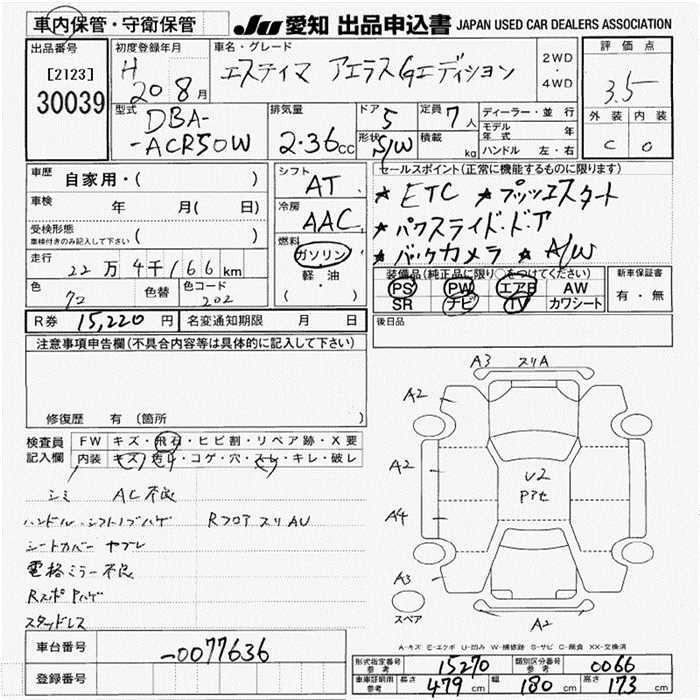 車内保管・守衛保管
JU 愛知 出品申込書 JAPAN USED CAR DEALERS ASSOCIATION
出品番号
[2123]
30039
初度登録年月
H 20 8月
車名・グレード
エスティマ アエラスGエディション
2WD
・
4WD
評価点
3.5
外装 内装
C D
型式
DBA-
-ACR50W
排気量
2.36cc
ドア 5
形状 S/W
定員 7人
積載 kg
ディーラー・並行
モデル年式 年
ハンドル 左・右
車歴 自家用・( )
車検 年 月( 日)
受検形態
車検付きのみ記入して下さい ( )
走行
22万4千166km
色 クロ 色替 色コード 202
R券 15,220円 名変通知期限 月 日
シフト
AT
冷房
AAC
燃料
ガソリン
軽・油
( )
セールスポイント(正常に機能するものに限ります)
★ ETC ★ プッシュスタート
★ パワスライドドア
★ バックカメラ ★ A/W
装備品(純正品に限り○をつけてください)
PS PW エアB AW
SR ナビ TV カワシート
新車保証書
有・無
後日品
注意事項申告欄(不具合内容等は具体的に記入して下さい)
修復歴 有 〔箇所 〕
検査員記入欄
FW キズ・飛石・ヒビ割・リペア跡・X要
内装 キズ・汚レ・コゲ・穴・スレ・キレ・破レ
シミ AC不良
ハンドル・シフトノブハゲ Rフロアスリ AU
シートカバーヤブレ
電格ミラー不良
RスポPハゲ
スタッドレス
A3 スリA
A2
A2
A4
A3
U2
Pアセ
A2
スペア
A-キズ E-エクボ U-凹み W-補修跡 S-サビ C-腐食 XX-交換済
車台番号 -0077636
登録番号
形式指定番号参考 15270 類別区分番号参考 0066
車庫証明用参考 長さ 479cm 幅 180cm 高さ 173cm